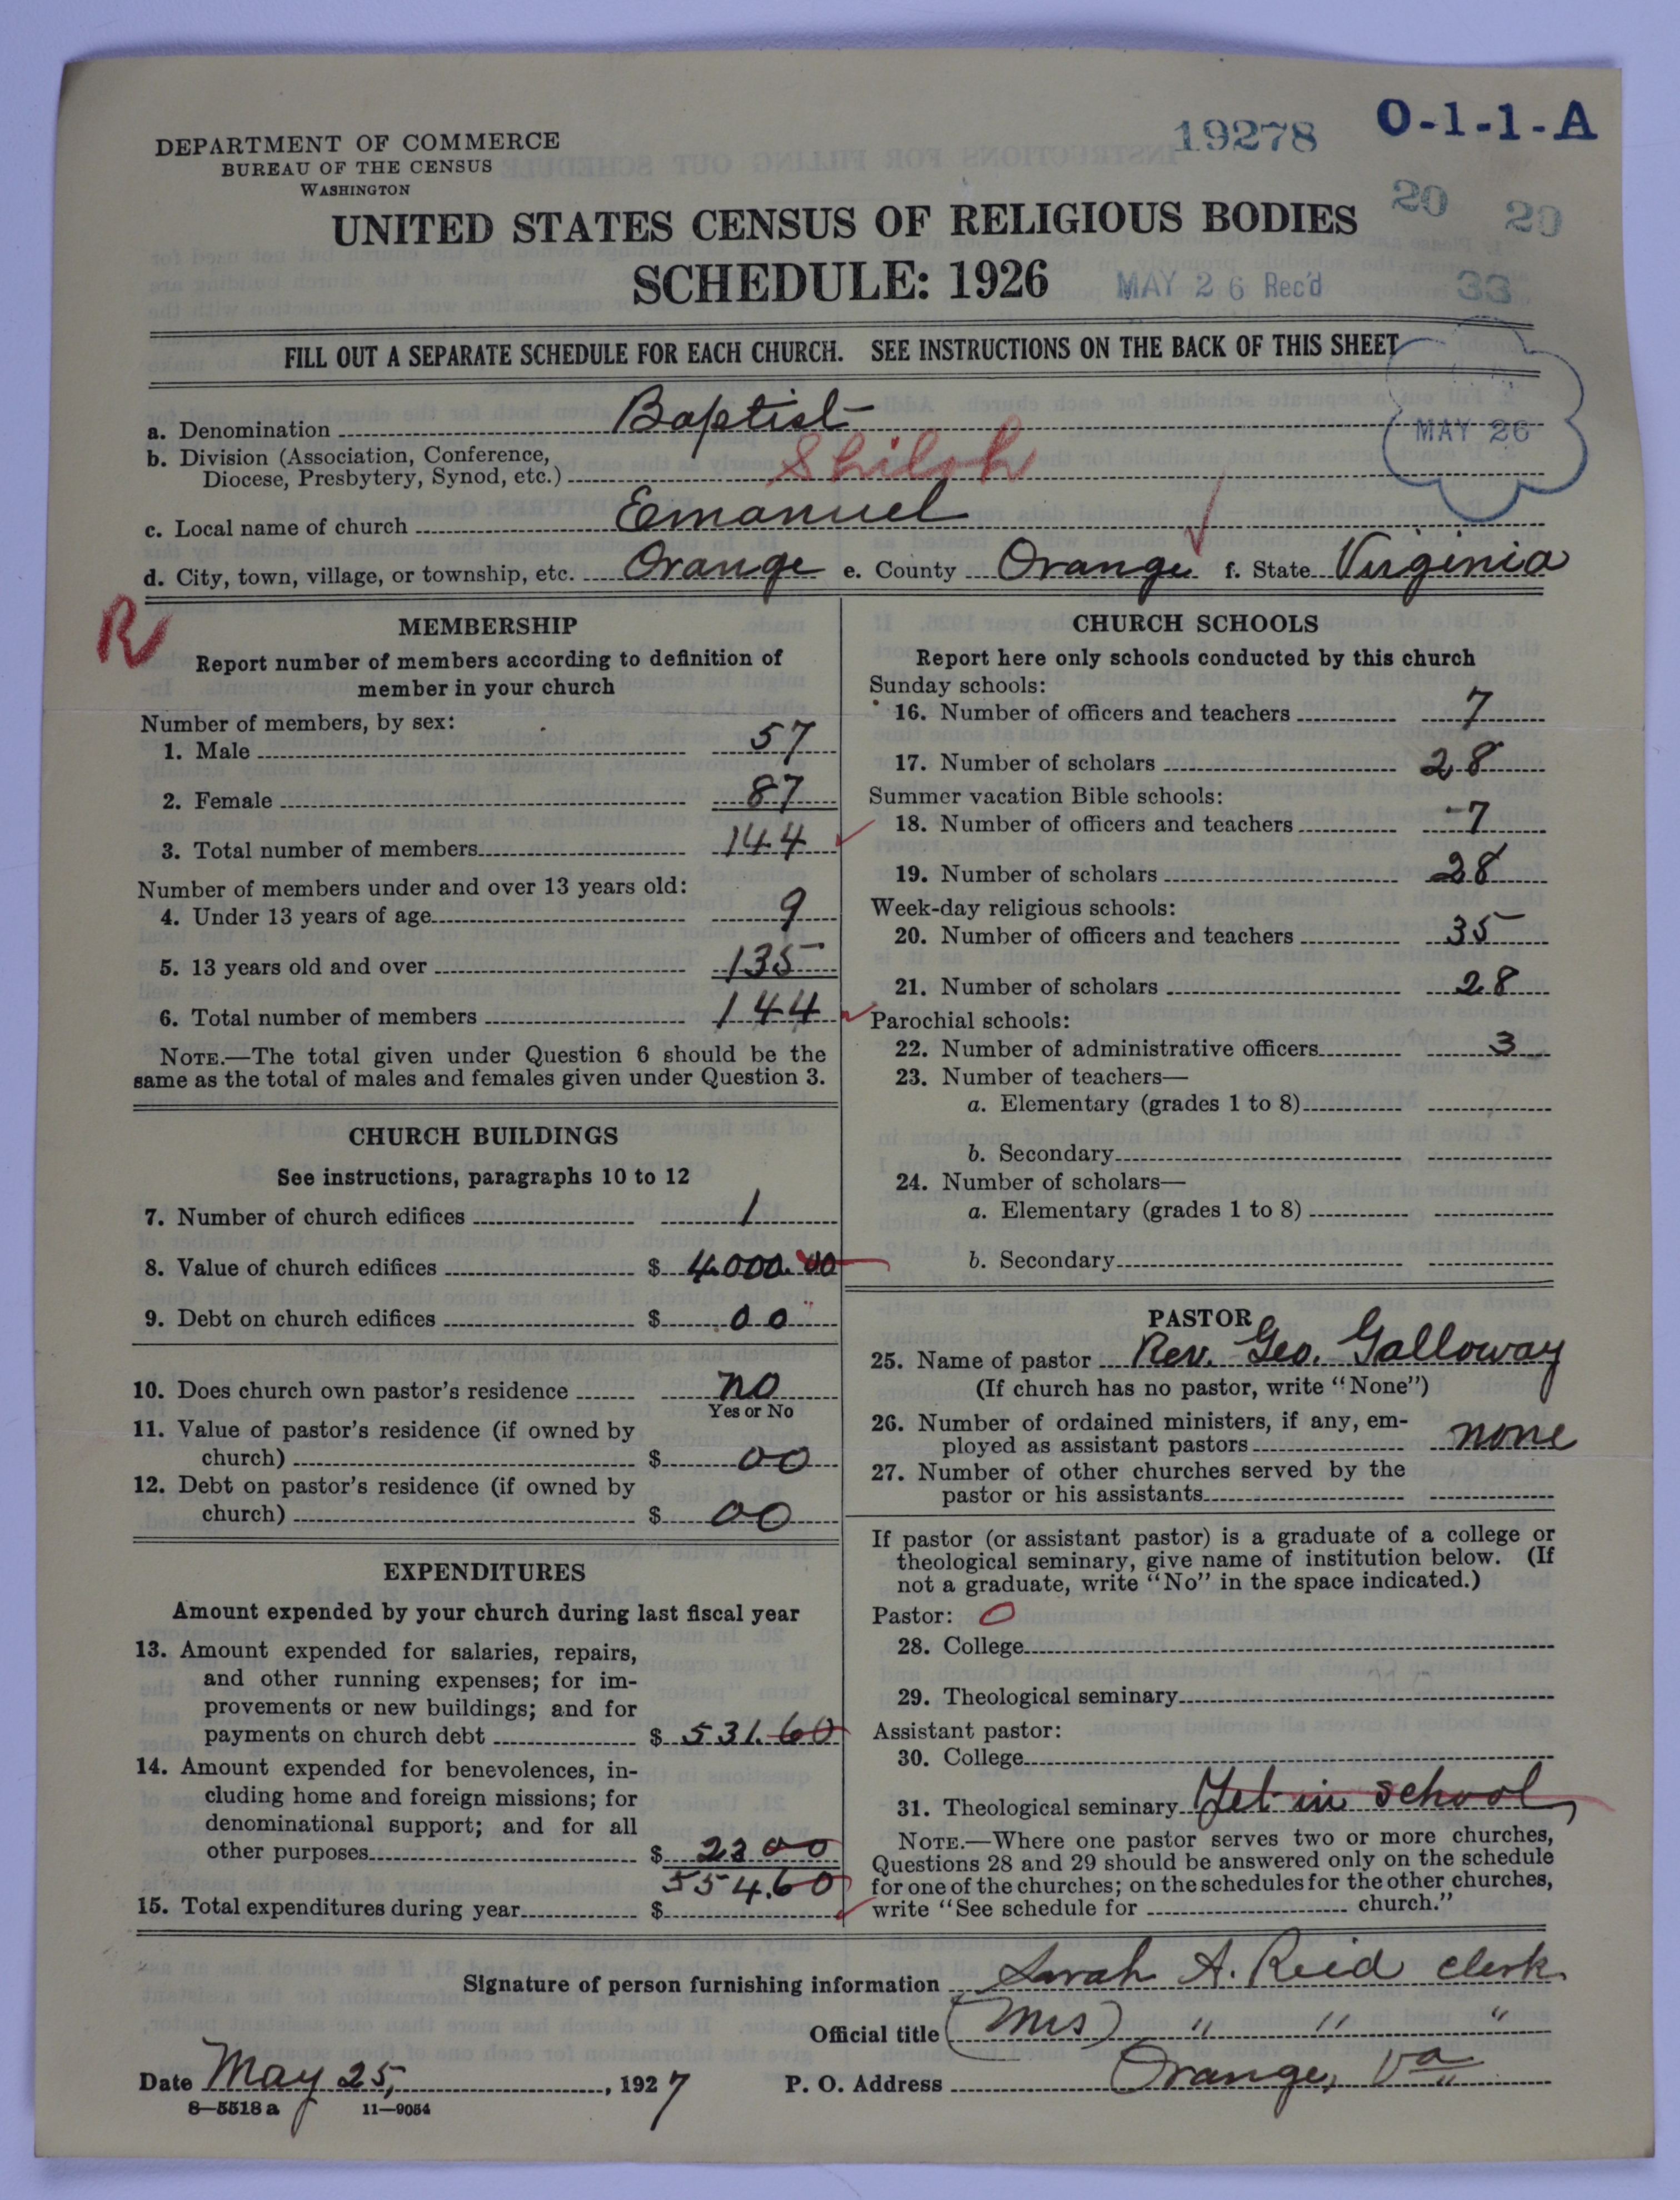 DEPARTMENT OF COMMERCE
BUREAU OF THE CENSUS
WASHINGTON
19278 O-1-1-A
20 29
UNITED STATES CENSUS OF RELIGIOUS BODIES
SCHEDULE: 1926
MAY 26 Rec'd 33
FILL OUT A SEPARATE SCHEDULE FOR EACH CHURCH. SEE INSTRUCTIONS ON THE BACK OF THIS SHEET
MAY 26
a. Denomination Baptist
b. Division (Association, Conference,
Diocese, Presbytery, Synod, etc.) Shiloh
c. Local name of church Emanuel
d. City, town, village, or township, etc. Orange e. County Orange f. State Virginia
R
MEMBERSHIP
Report number of members according to definition of
member in your church
Number of members, by sex:
1. Male 57
2. Female 87
3. Total number of members 144
Number of members under and over 13 years old:
4. Under 13 years of age 9
5. 13 years old and over 135
6. Total number of members 144
NOTE.—The total given under Question 6 should be the
same as the total of males and females given under Question 3.
CHURCH BUILDINGS
See instructions, paragraphs 10 to 12
7. Number of church edifices 1
8. Value of church edifices $ 4000.00
9. Debt on church edifices $ 00
10. Does church own pastor's residence no
Yes or No
11. Value of pastor's residence (if owned by
church) $ 00
12. Debt on pastor's residence (if owned by
church) $ 00
EXPENDITURES
Amount expended by your church during last fiscal year
13. Amount expended for salaries, repairs,
and other running expenses; for im-
provements or new buildings; and for
payments on church debt $ 531.60
14. Amount expended for benevolences, in-
cluding home and foreign missions; for
denominational support; and for all
other purposes $ 23 00
554.60
15. Total expenditures during year $
CHURCH SCHOOLS
Report here only schools conducted by this church
Sunday schools:
16. Number of officers and teachers 7
17. Number of scholars 28
Summer vacation Bible schools:
18. Number of officers and teachers 7
19. Number of scholars 28
Week-day religious schools:
20. Number of officers and teachers 35
21. Number of scholars 28
Parochial schools:
22. Number of administrative officers 3
23. Number of teachers—
a. Elementary (grades 1 to 8)
b. Secondary
24. Number of scholars—
a. Elementary (grades 1 to 8)
b. Secondary
PASTOR
25. Name of pastor Rev. Geo. Galloway
(If church has no pastor, write "None")
26. Number of ordained ministers, if any, em-
ployed as assistant pastors none
27. Number of other churches served by the
pastor or his assistants
If pastor (or assistant pastor) is a graduate of a college or
theological seminary, give name of institution below. (If
not a graduate, write "No" in the space indicated.)
Pastor: O
28. College
29. Theological seminary
Assistant pastor:
30. College
31. Theological seminary Yet in school
NOTE.—Where one pastor serves two or more churches,
Questions 28 and 29 should be answered only on the schedule
for one of the churches; on the schedules for the other churches,
write "See schedule for church."
Signature of person furnishing information Sarah A. Reid clerk
Official title (Mrs) " " "
Date May 25, 1927 P. O. Address Orange, Va
8—5518 a 11—9054